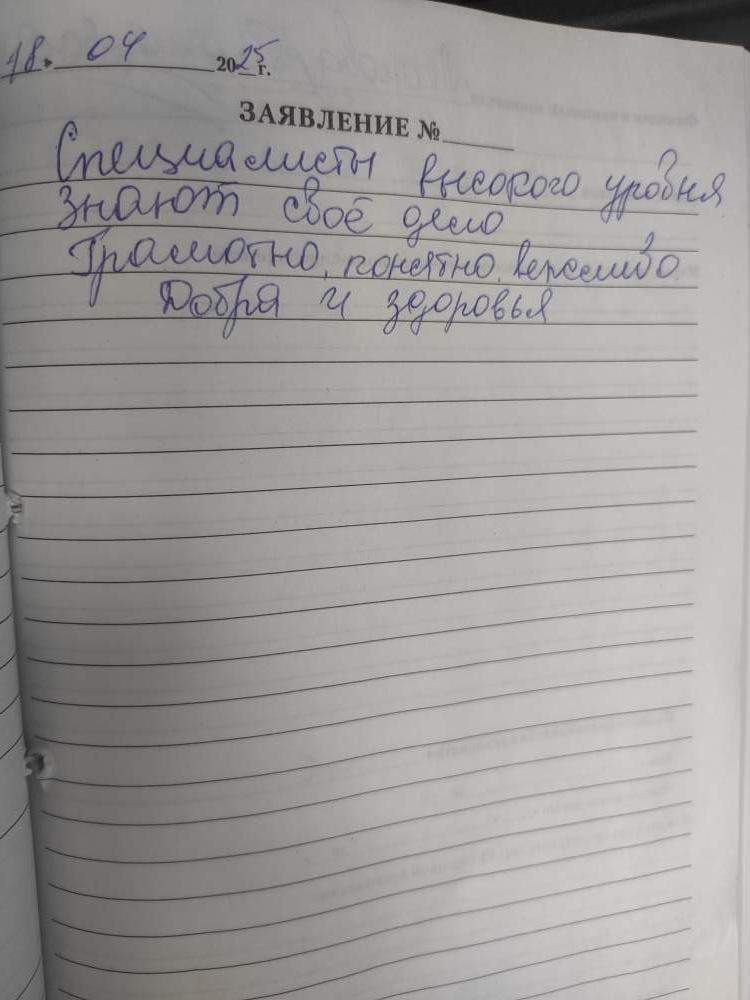 18. 04 2025 г.
ЗАЯВЛЕНИЕ №
Специалисты высокого уровня
Знают своё дело
Грамотно, понятно, вежливо.
Добра и здоровья